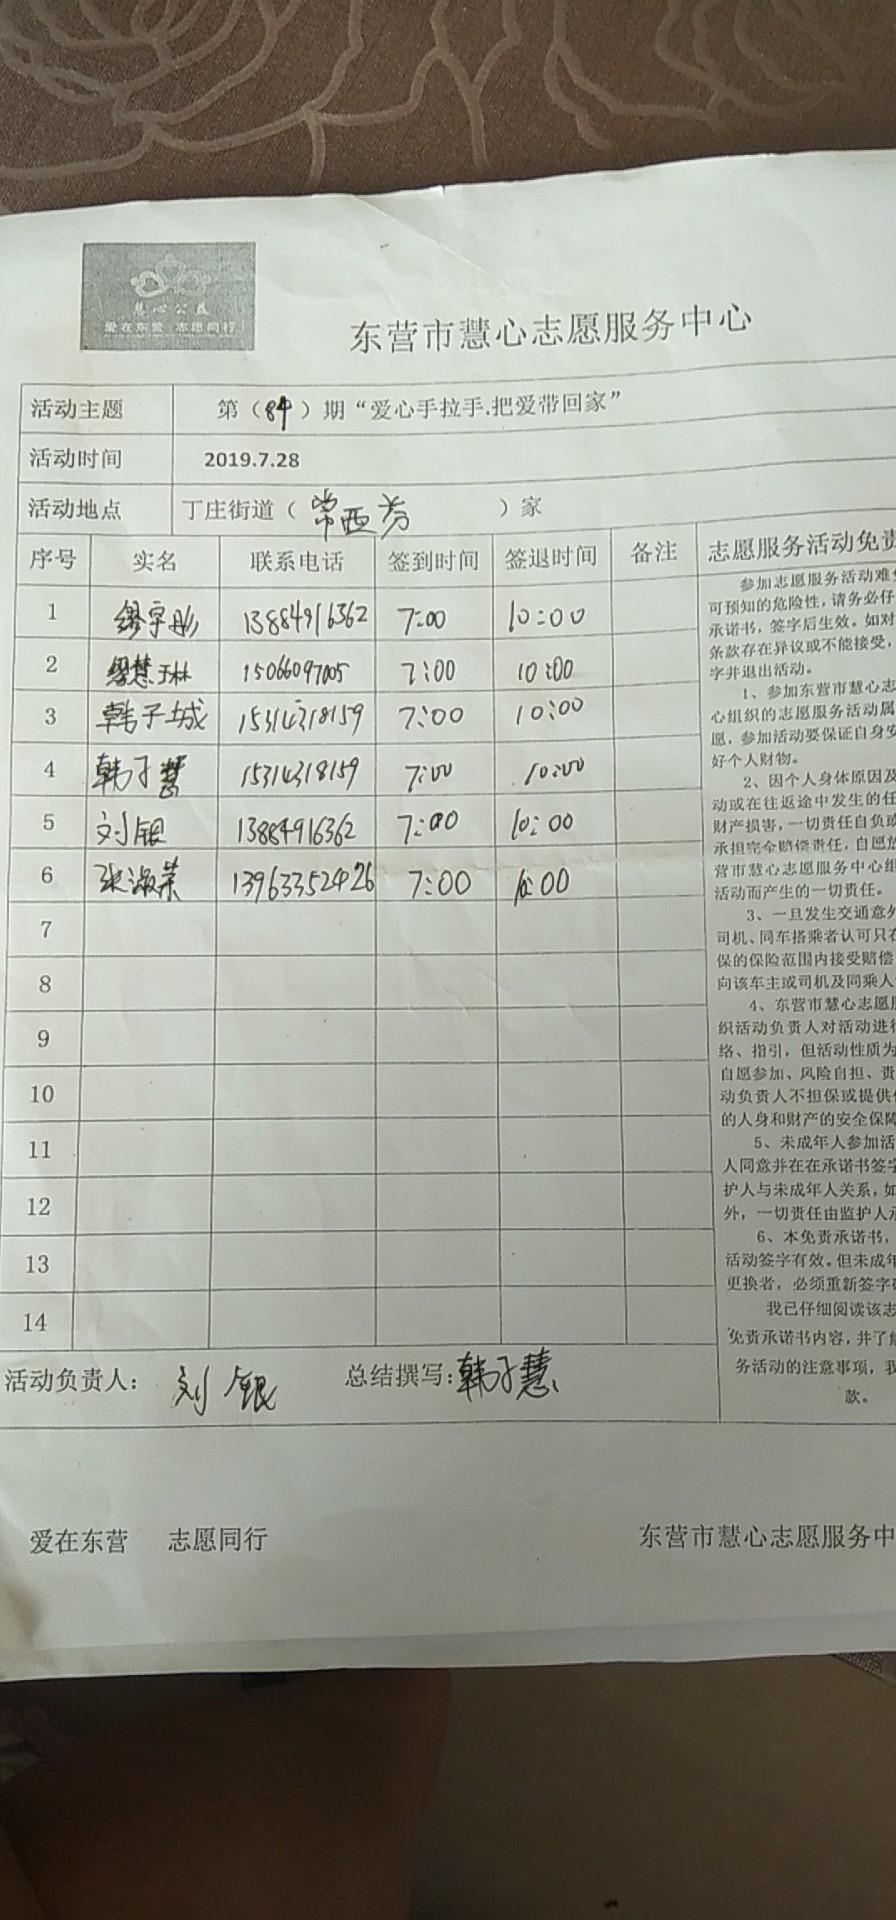 慧心公益
爱在东营 志愿同行
东营市慧心志愿服务中心
活动主题 第（84）期“爱心手拉手.把爱带回家”
活动时间 2019.7.28
活动地点 丁庄街道（常西芳）家
序号 实名 联系电话 签到时间 签退时间 备注
1 宇彤 13884916362 7:00 10:00
2 慧琳 15066097005 7:00 10:00
3 韩子城 15314318159 7:00 10:00
4 韩子慧 15314318159 7:00 10:00
5 刘银 13884916362 7:00 10:00
6 张淑荣 13963352426 7:00 10:00
7
8
9
10
11
12
13
14
志愿服务活动免责
参加志愿服务活动难免
可预知的危险性，请务必仔
承诺书，签字后生效。如对
条款存在异议或不能接受，
字并退出活动。
1、参加东营市慧心志
心组织的志愿服务活动属
愿，参加活动要保证自身安
好个人财物。
2、因个人身体原因及
动或在往返途中发生的任
财产损害，一切责任自负或
承担完全赔偿责任，自愿放
营市慧心志愿服务中心组
活动而产生的一切责任。
3、一旦发生交通意外
司机、同车搭乘者认可只在
保的保险范围内接受赔偿
向该车主或司机及同乘人
4、东营市慧心志愿服
织活动负责人对活动进行
络、指引，但活动性质为
自愿参加、风险自担、责
动负责人不担保或提供
的人身和财产的安全保障
5、未成年人参加活
人同意并在在承诺书签字
护人与未成年人关系，如
外，一切责任由监护人承
6、本免责承诺书，
活动签字有效。但未成年
更换者，必须重新签字
我已仔细阅读该志
免责承诺书内容，并了解
务活动的注意事项，我
款。
活动负责人：刘银 总结撰写：韩子慧
爱在东营 志愿同行 东营市慧心志愿服务中